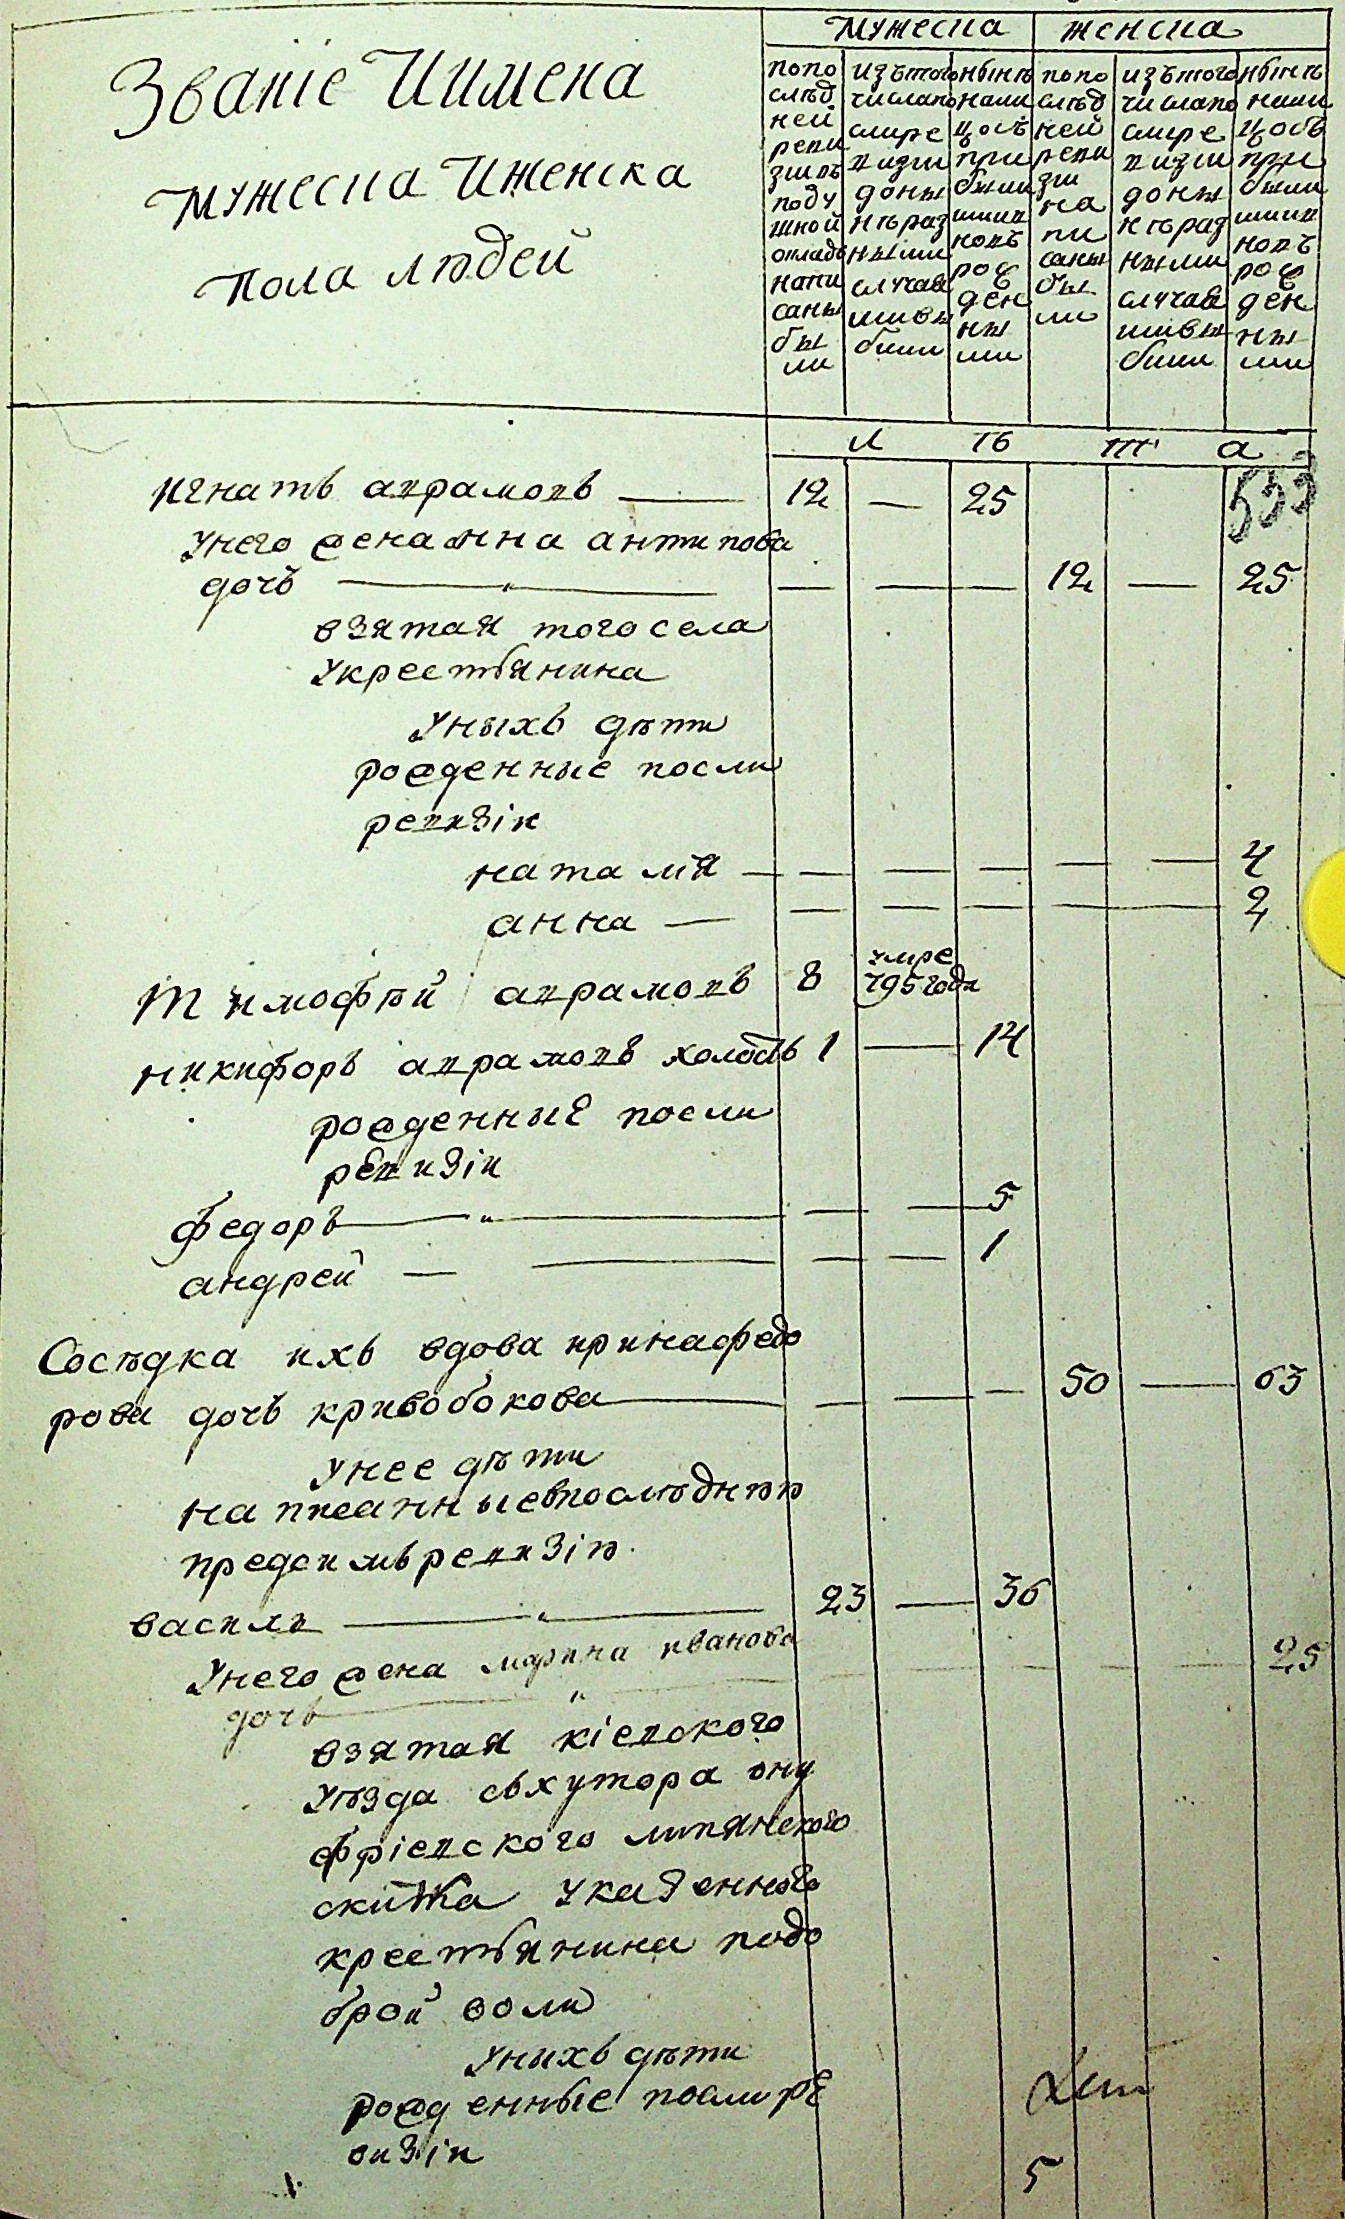 мужеска женска
Званіе Иимена
мужеска Иженска
пола людей
попо слѣд ней реви зіивъ поду шной окладъ напи саны бы ли
изътого числапо слѣре визіи доны нѣраз ными случаи ивы были
нынѣ нали цосъ при были иновъ рож ден ны ми
попо слѣд ней реви зіи на пи саны бы ли
изътого числапо слѣре визіи доны нѣраз ными случаи ивы были
нынѣ нали цось при были иновъ рож ден ны ми
л ѣ т а
533
игнатъ аврамовъ 12 — 25
унего жена анна антипова
дочъ — — — 12 — 25
взятая тогосела
укрестьянина
уныхъ дѣти
рожденные посли
ревизіи
наталія — — — — — 4
анна — — — — — 2
тимофѣй аврамовъ 8 умре
795года
никифоръ аврамовъ холостъ 1 — 14
рожденные посли
ревизіи
федоръ — — 5
андрей — — 1
Сосѣдка ихъ вдова иринафедо
рова дочъ кривобокова — — — 50 — 63
унее дѣти
написанныевпослѣднѣй
предсимъревизіи
василь 23 — 36
унего жена марина иванова 25
дочъ
взятая кіевского
уѣзда съхутора ону
фріевского липянского
скитка указенного
крестьянина подо
брой воли
уныхъ дѣти
рожденные послире
визіи
5